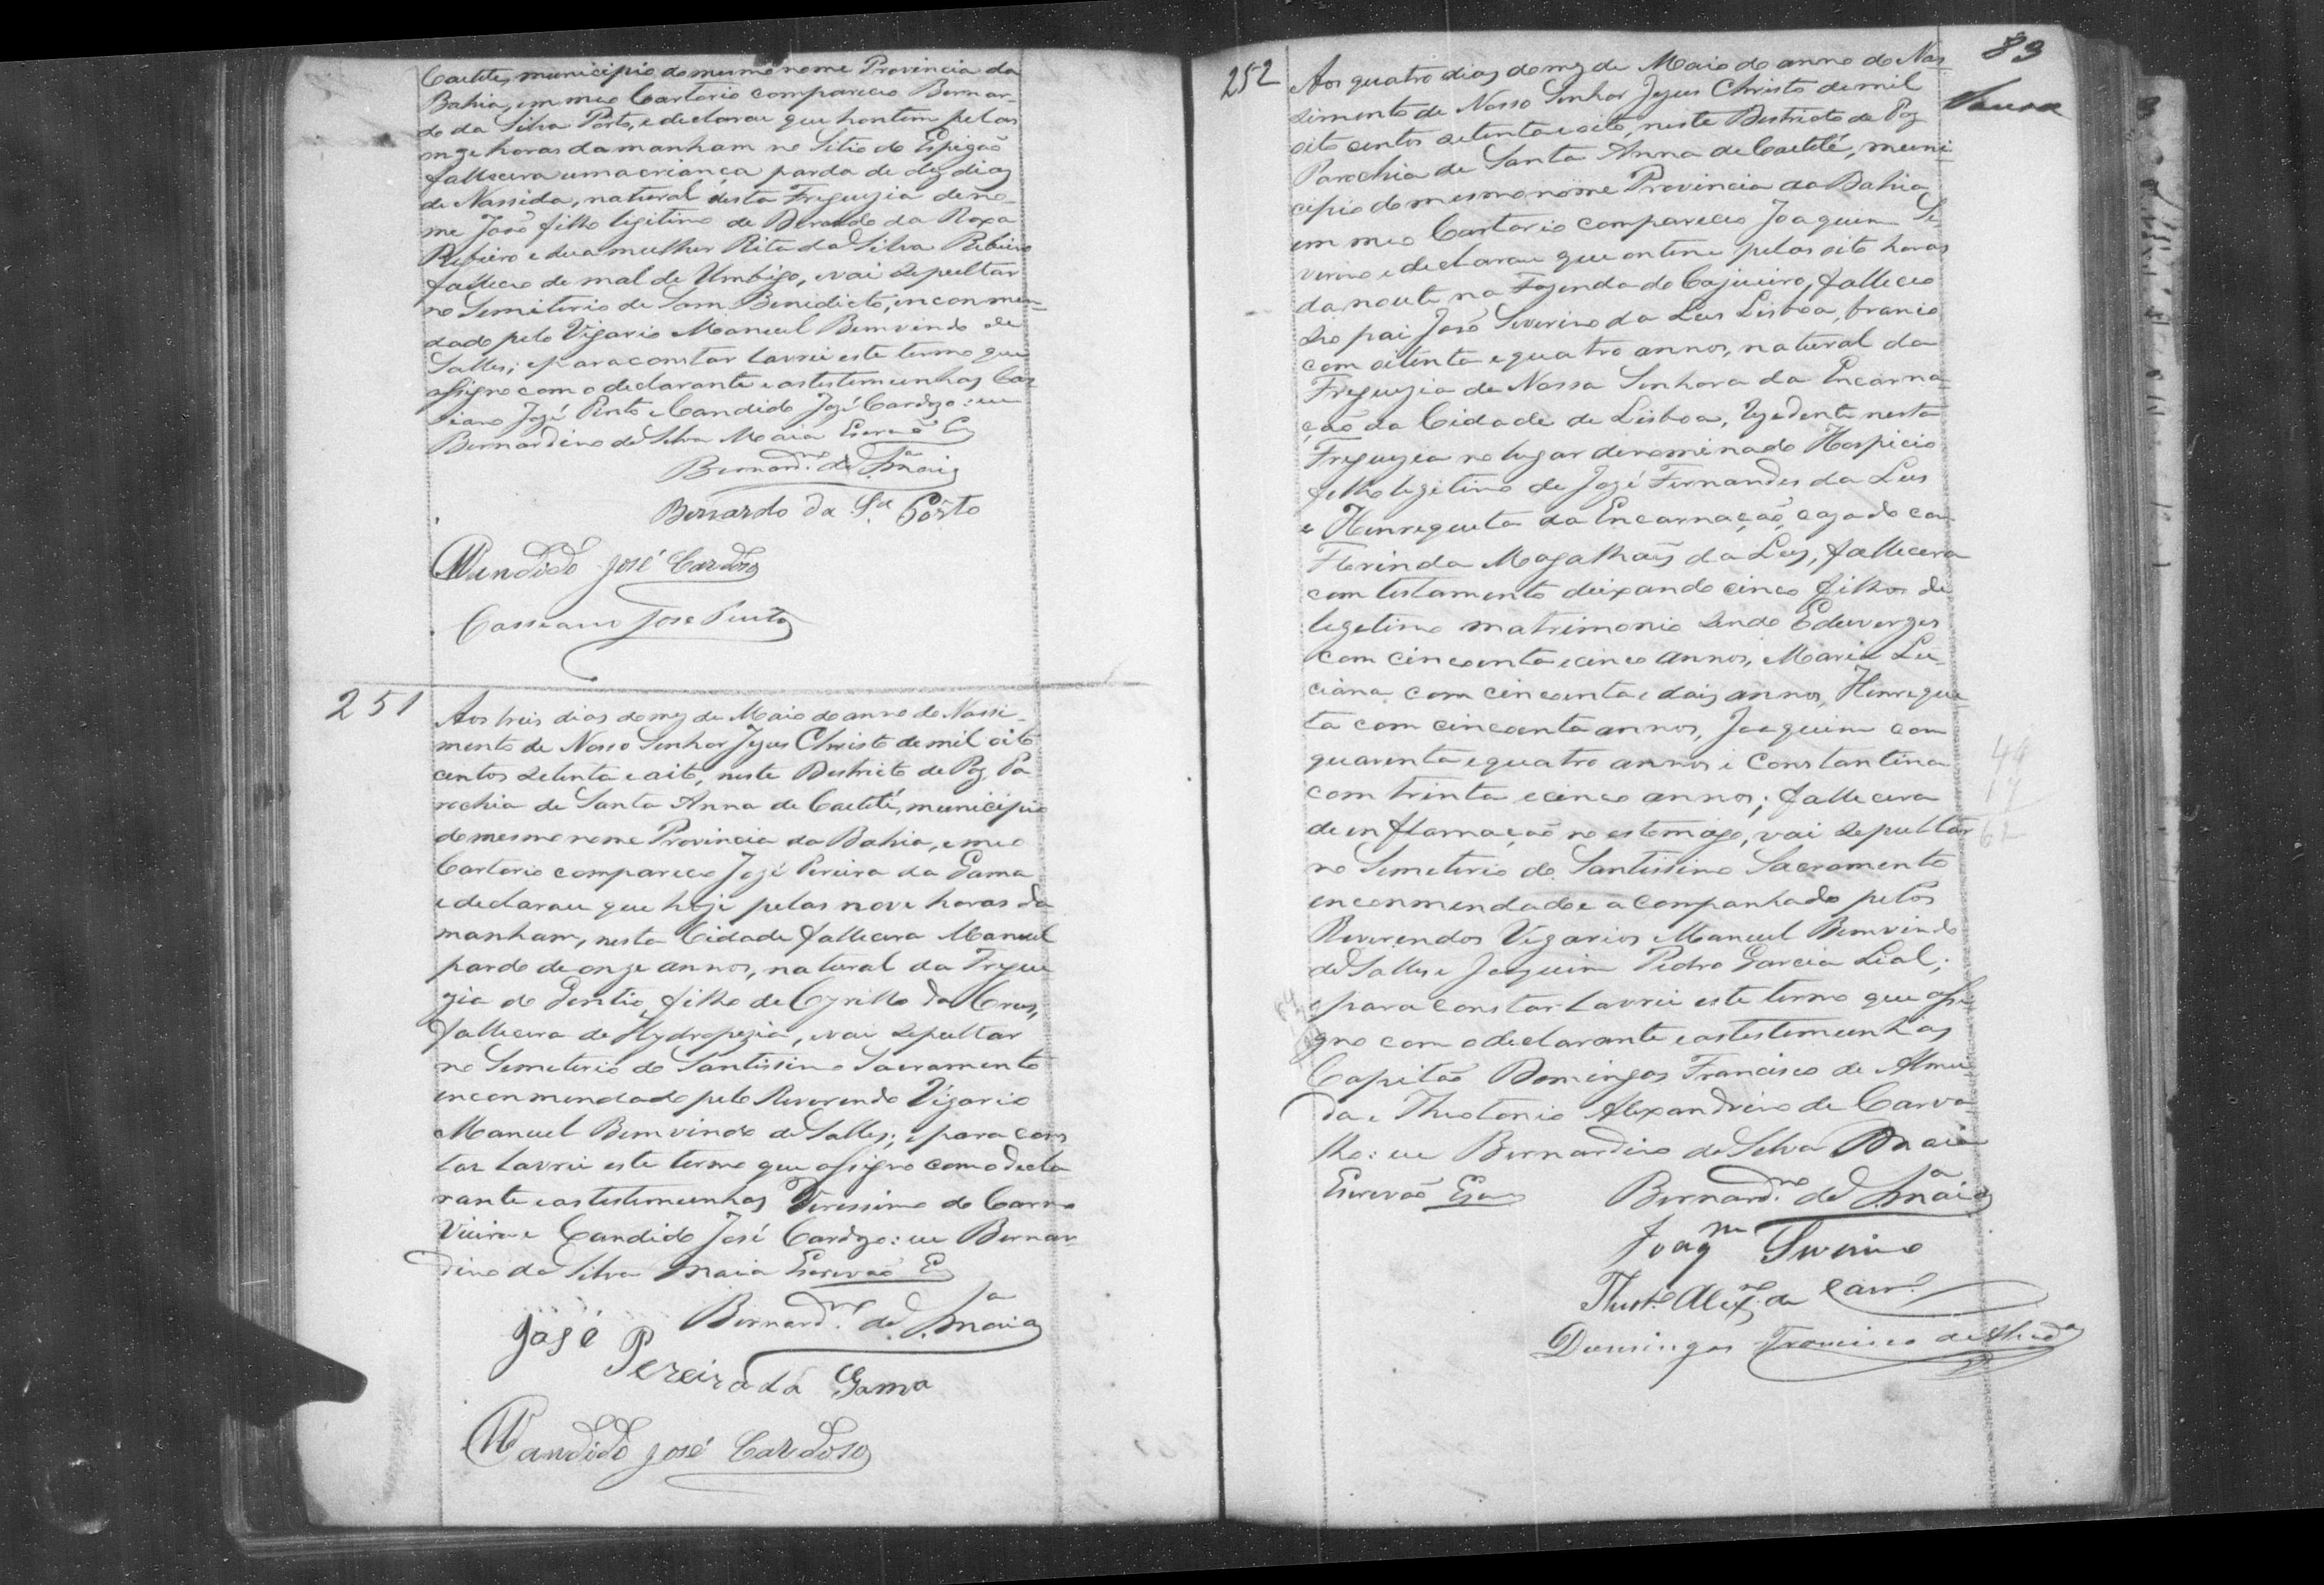 Caetite, municipio do mesmo nome Provincia da
Bahia, em meo Cartorio compareceo Bernar-
do da Silva Porto, e declarou que hontem pelas
onze horas da manham no Sitio do Espigão
fallecera uma criança parda de dez dias
de Nassida, natural desta Freguezia de no-
me João filho legitimo de da Roxa
Ribeiro e sua mulher Rita da Silva Ribeiro
falleceo de mal de Umbigo, e vai sepultar
no Semiterio de Sam Benidicto, enconmen-
dado pelo Vigario Manuel Bemvindo de
Salles; e para constar lavrei este termo que
assigno com o declarante e as testemunhas Cas-
siano José Pinto e Candido José Cardozo: eu
Bernardino da Silva Maia Escrivão
Bernard.no da S.a Maia
Bernardo da S.a Pôrto
Candido José Cardoso
Cassiano José Pinto
251
Aos treis dias do mez de Maio do anno do Nassi-
mento de Nosso Senhor Jezus Christo de mil oito
centos setenta e oito, neste Destricto de Paz Pa-
rochia de Santa Anna de Caetité, municipio
do mesmo nome Provincia da Bahia, e meo
Cartorio compareceo José Pereira da Gama
e declarou que hoje pelas nove horas da
manham, nesta Cidade fallecera Manuel
pardo de onze annos, natural da Fregue
zia do Gentio, filho de Cyrillo da Crus,
fallecera de Hydropezia, e vai sepultar
no Semeterio do Santissimo Sacramento
enconmendado pelo Reverendo Vigario
Manuel Bemvindo de Salles; e para cons
tar lavrei este termo que assigno com o decla
rante e as testemunhas Veressimo do Carmo
Vieira e Candido José Cardozo: eu Bernar-
dino da Silva Maia Escrivão
Bernard.no da S.a Maia
José Pereira da Gama
Candido José Cardoso
83
252
Aos quatro dias do mez de Maio do anno do Nas-
simento de Nosso Senhor Jezus Christo de mil
oito centos setenta e oito, neste Destricto de Paz
Parochia de Santa Anna de Caetité, muni-
cipio do mesmo nome Provincia da Bahia,
em meo Cartorio compareceo Joaquim Se-
verino e declarou que ontem pelas oito horas
da noute na Fazenda do Cajueiro, falleceo
seo pai José Severino da Lus Lisboa, branco
com oitenta e quatro annos, natural da
Freguezia de Nossa Senhora da Encarna-
ção da Cidade de Lisboa, rezedente nesta
Freguezia no lugar denominado Hospicio
filho legitimo de José Fernandes da Lus
e Henriqueta da Encarnação, cazado co
Florinda Magalhães da Lus, fallecera
com testamento deixando cinco filhos de
legetimo matrimonio sendo Eduverges
com cincoenta e cinco annos, Maria Lu-
ciana com cincoenta e dois annos, Henrique-
ta com cincoenta annos, Joaquim com
quarenta e quatro annos e Constantina
com trinta e cinco annos; fallecera
de inflamação no estomago, vai sepultar
no Semeterio do Santissimo Sacramento
enconmendado e acompanhado pelos
Reverendos Vigarios Manuel Bemvindo
de Salles e Joaquim Pedro Garcia Leal;
e para constar lavrei este termo que assi-
gno com o declarante e as testemunhas
Capitão Domingos Francisco de Almei
da e Theotonio Alexandrino de Carva
lho: eu Bernardino da Silva Maia
Escrivão
Bernard.no da S.a Maia
Joaq.m Severino
Theot.o Alex.no de Carv.o
Domingos Francisco de Almeida